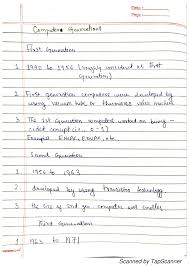 Date :
Page :
Computer Generations
First Generation
1 1940 to 1956 (roughly considered as First
Generation)
2 First generation computers were developed by
using vacuum tube or thermionic valve machine
3 The 1st Generation computers worked on binary-
coded concept (i.e., 0-1)
Example ENIAC, EDVAC, etc.
Second Generation
1 1956 to 1963
2 developed by using transistor technology
3 the size of 2nd gen. computer well smaller
Third Generation
1 1963 to 1971
Scanned by TapScanner